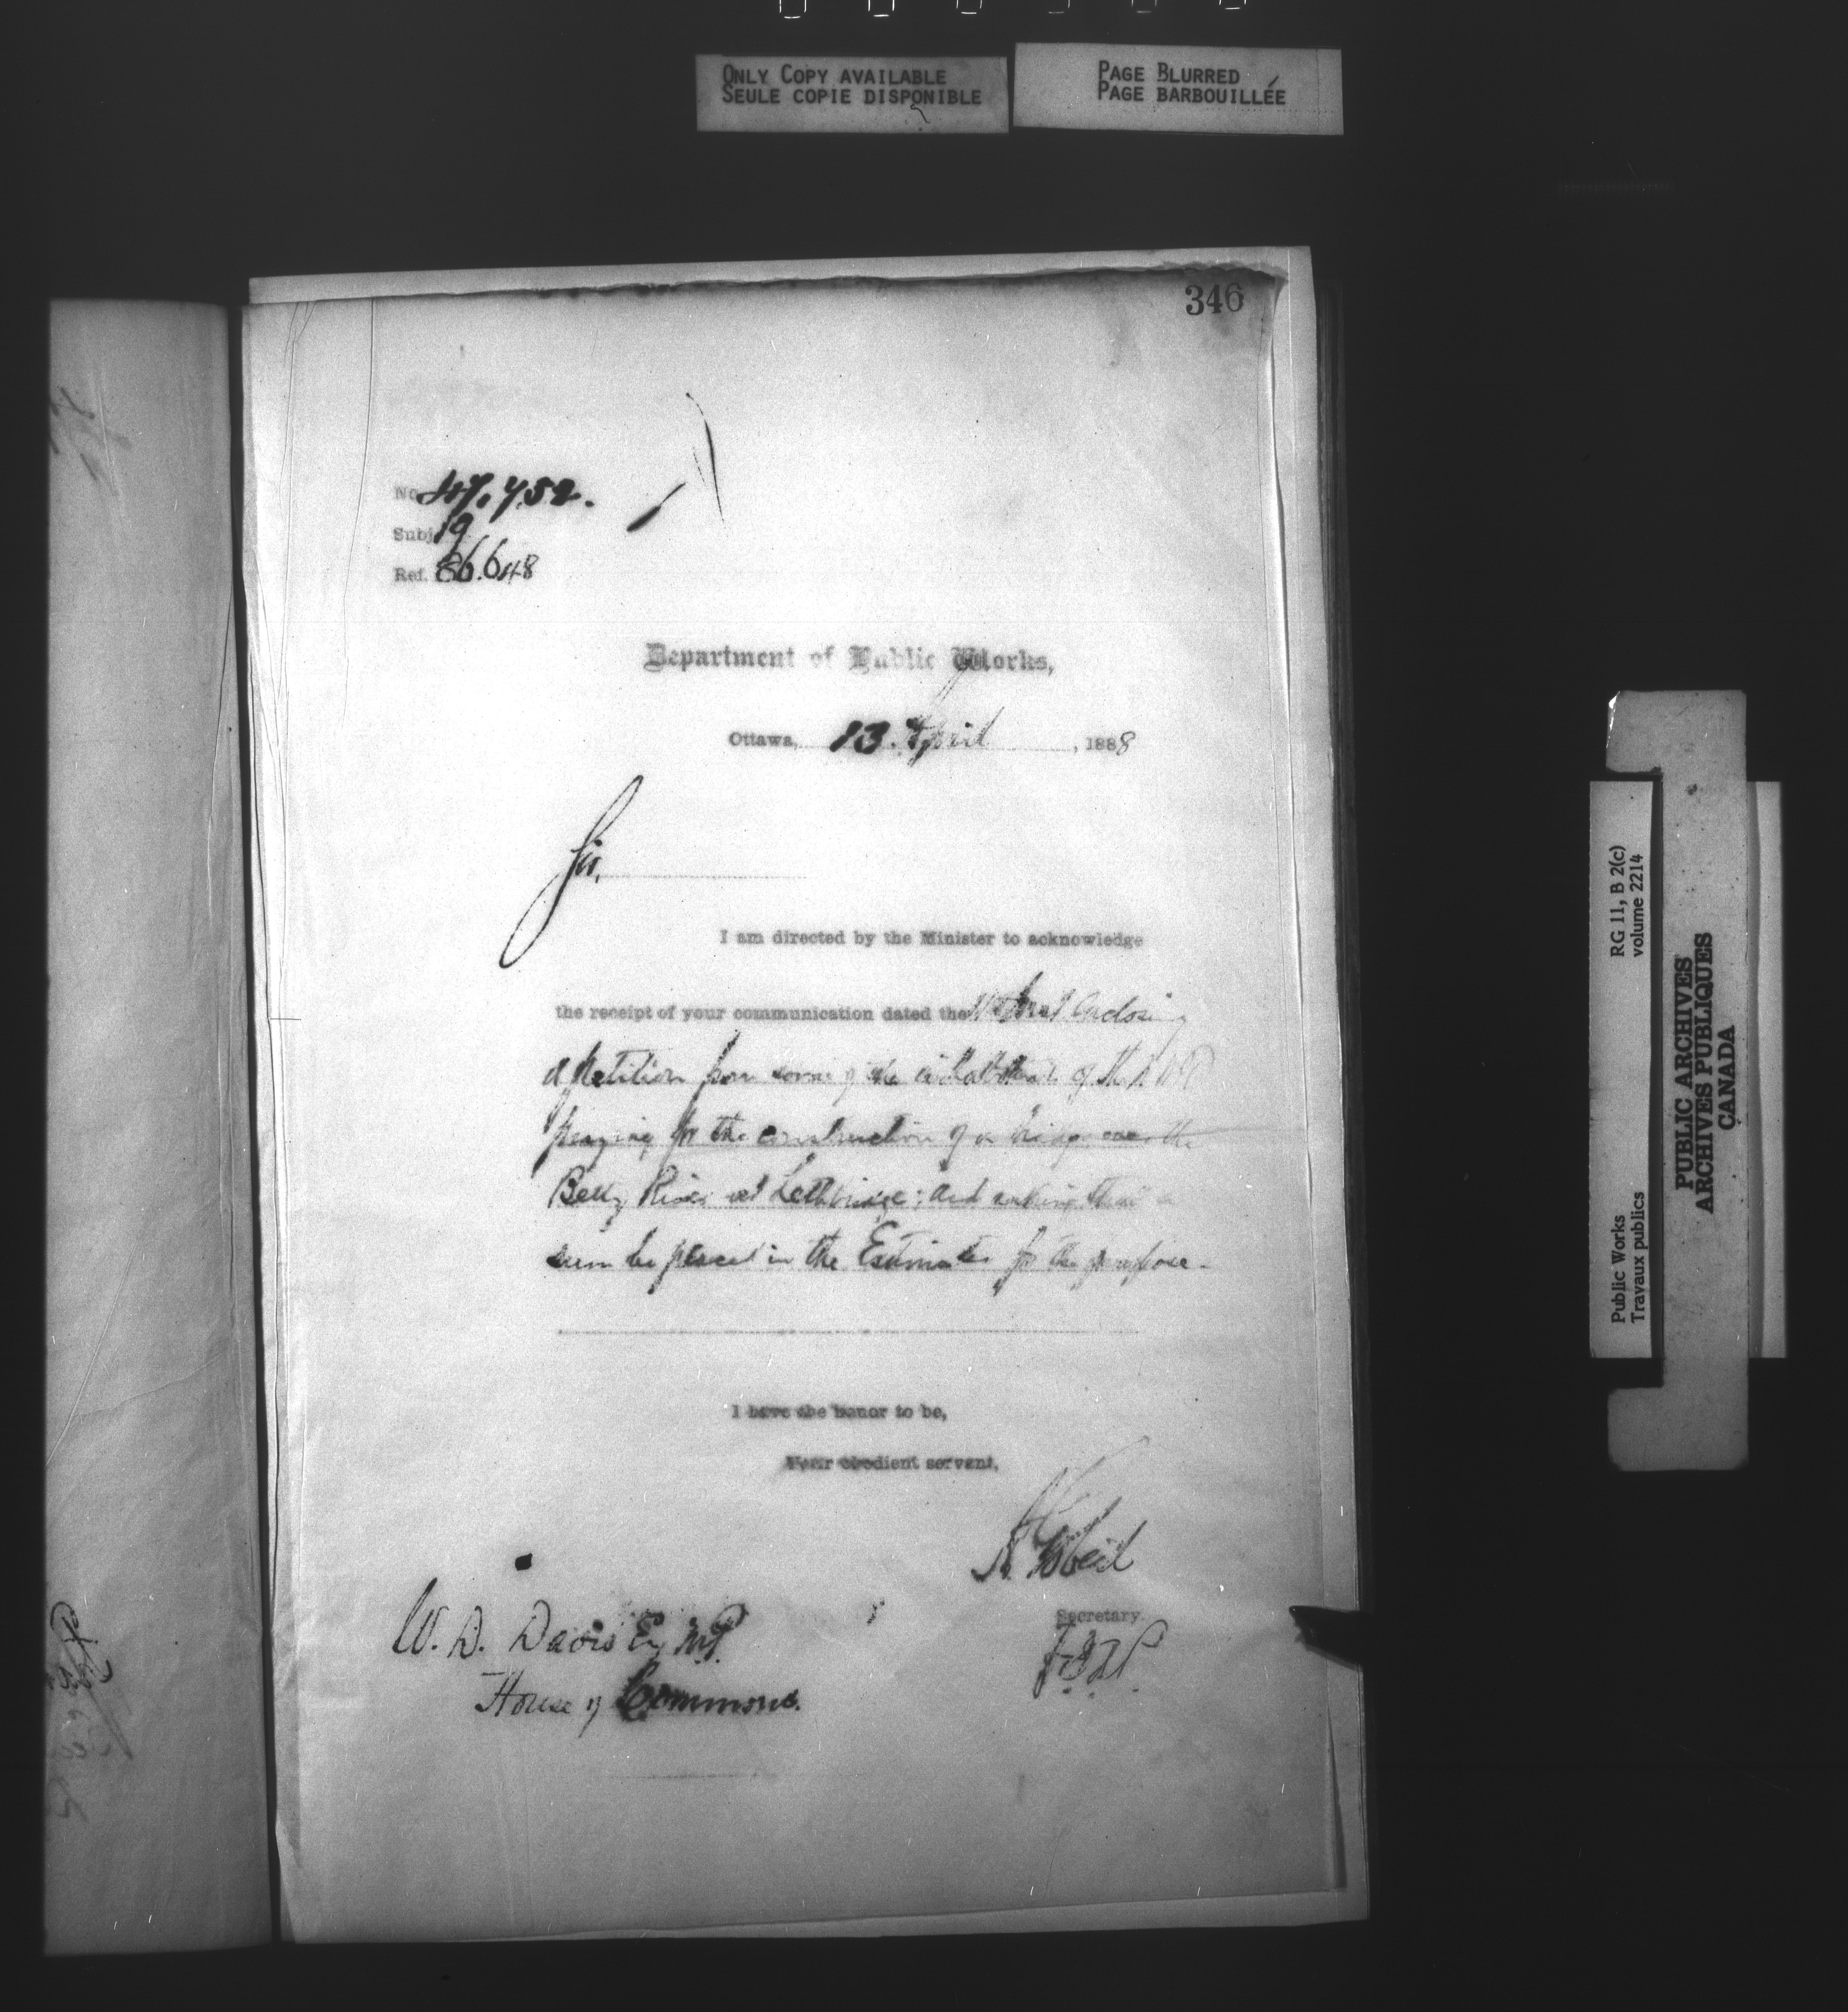 ONLY COPY AVAILABLE
SEULE COPIE DISPONIBLE
PAGE BLURRED
PAGE BARBOUILLÉE
346
No 47,752.
Subj 19
Ref. 86.648
Department of Public Works,
Ottawa, 13. April, 1888
Sir,
I am directed by the Minister to acknowledge
the receipt of your communication dated the Inst enclosing
a petition from some of the inhabitants of the N W T
praying for the construction of a bridge over the
Belly River at Lethbridge; and asking that a
sum be placed in the Estimates for the purpose.
I have the honor to be,
Your obedient servant,
A Gobeil
Secretary.
W. D. Davis Esq M.P.
House of Commons.
RG 11, B 2(c)
volume 2214
Public Works
Travaux publics
PUBLIC ARCHIVES
ARCHIVES PUBLIQUES
CANADA